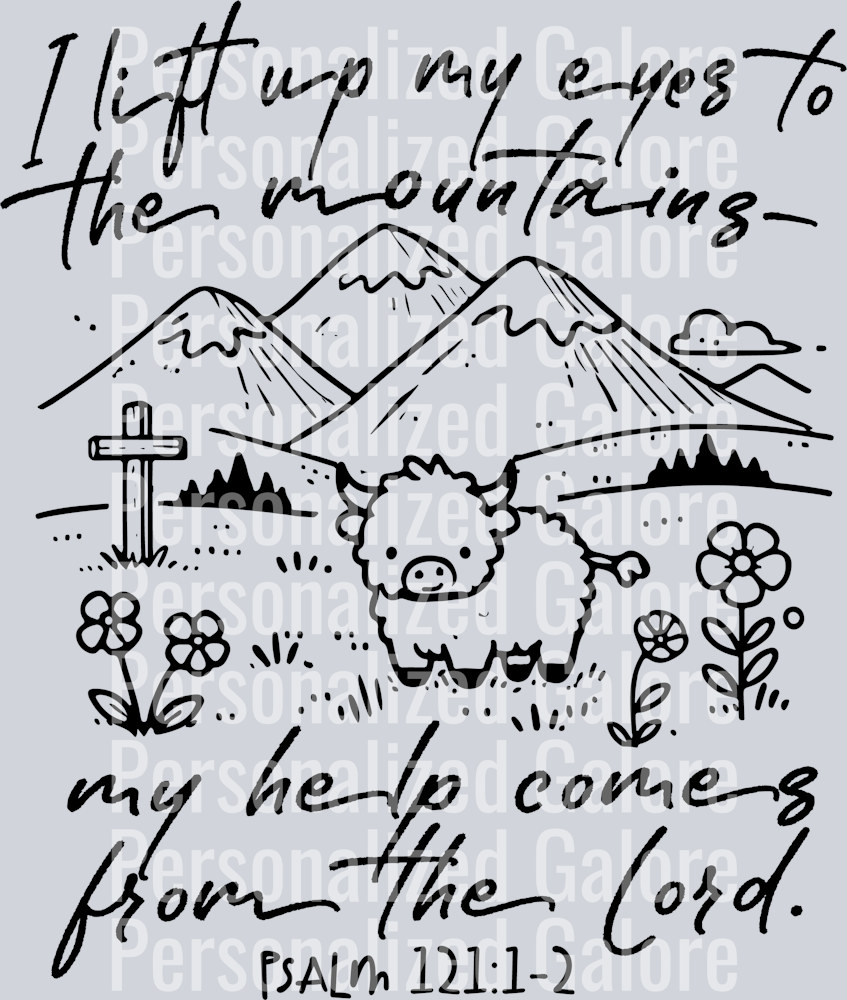 I lift up my eyes to
the mountains
my help comes
from the Lord.
PSALM 121:1-2
Personalized Galore
Personalized Galore
Personalized Galore
Personalized Galore
Personalized Galore
Personalized Galore
Personalized Galore
Personalized Galore
Personalized Galore
Personalized Galore
Personalized Galore